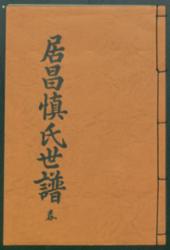 居昌愼氏世譜
春